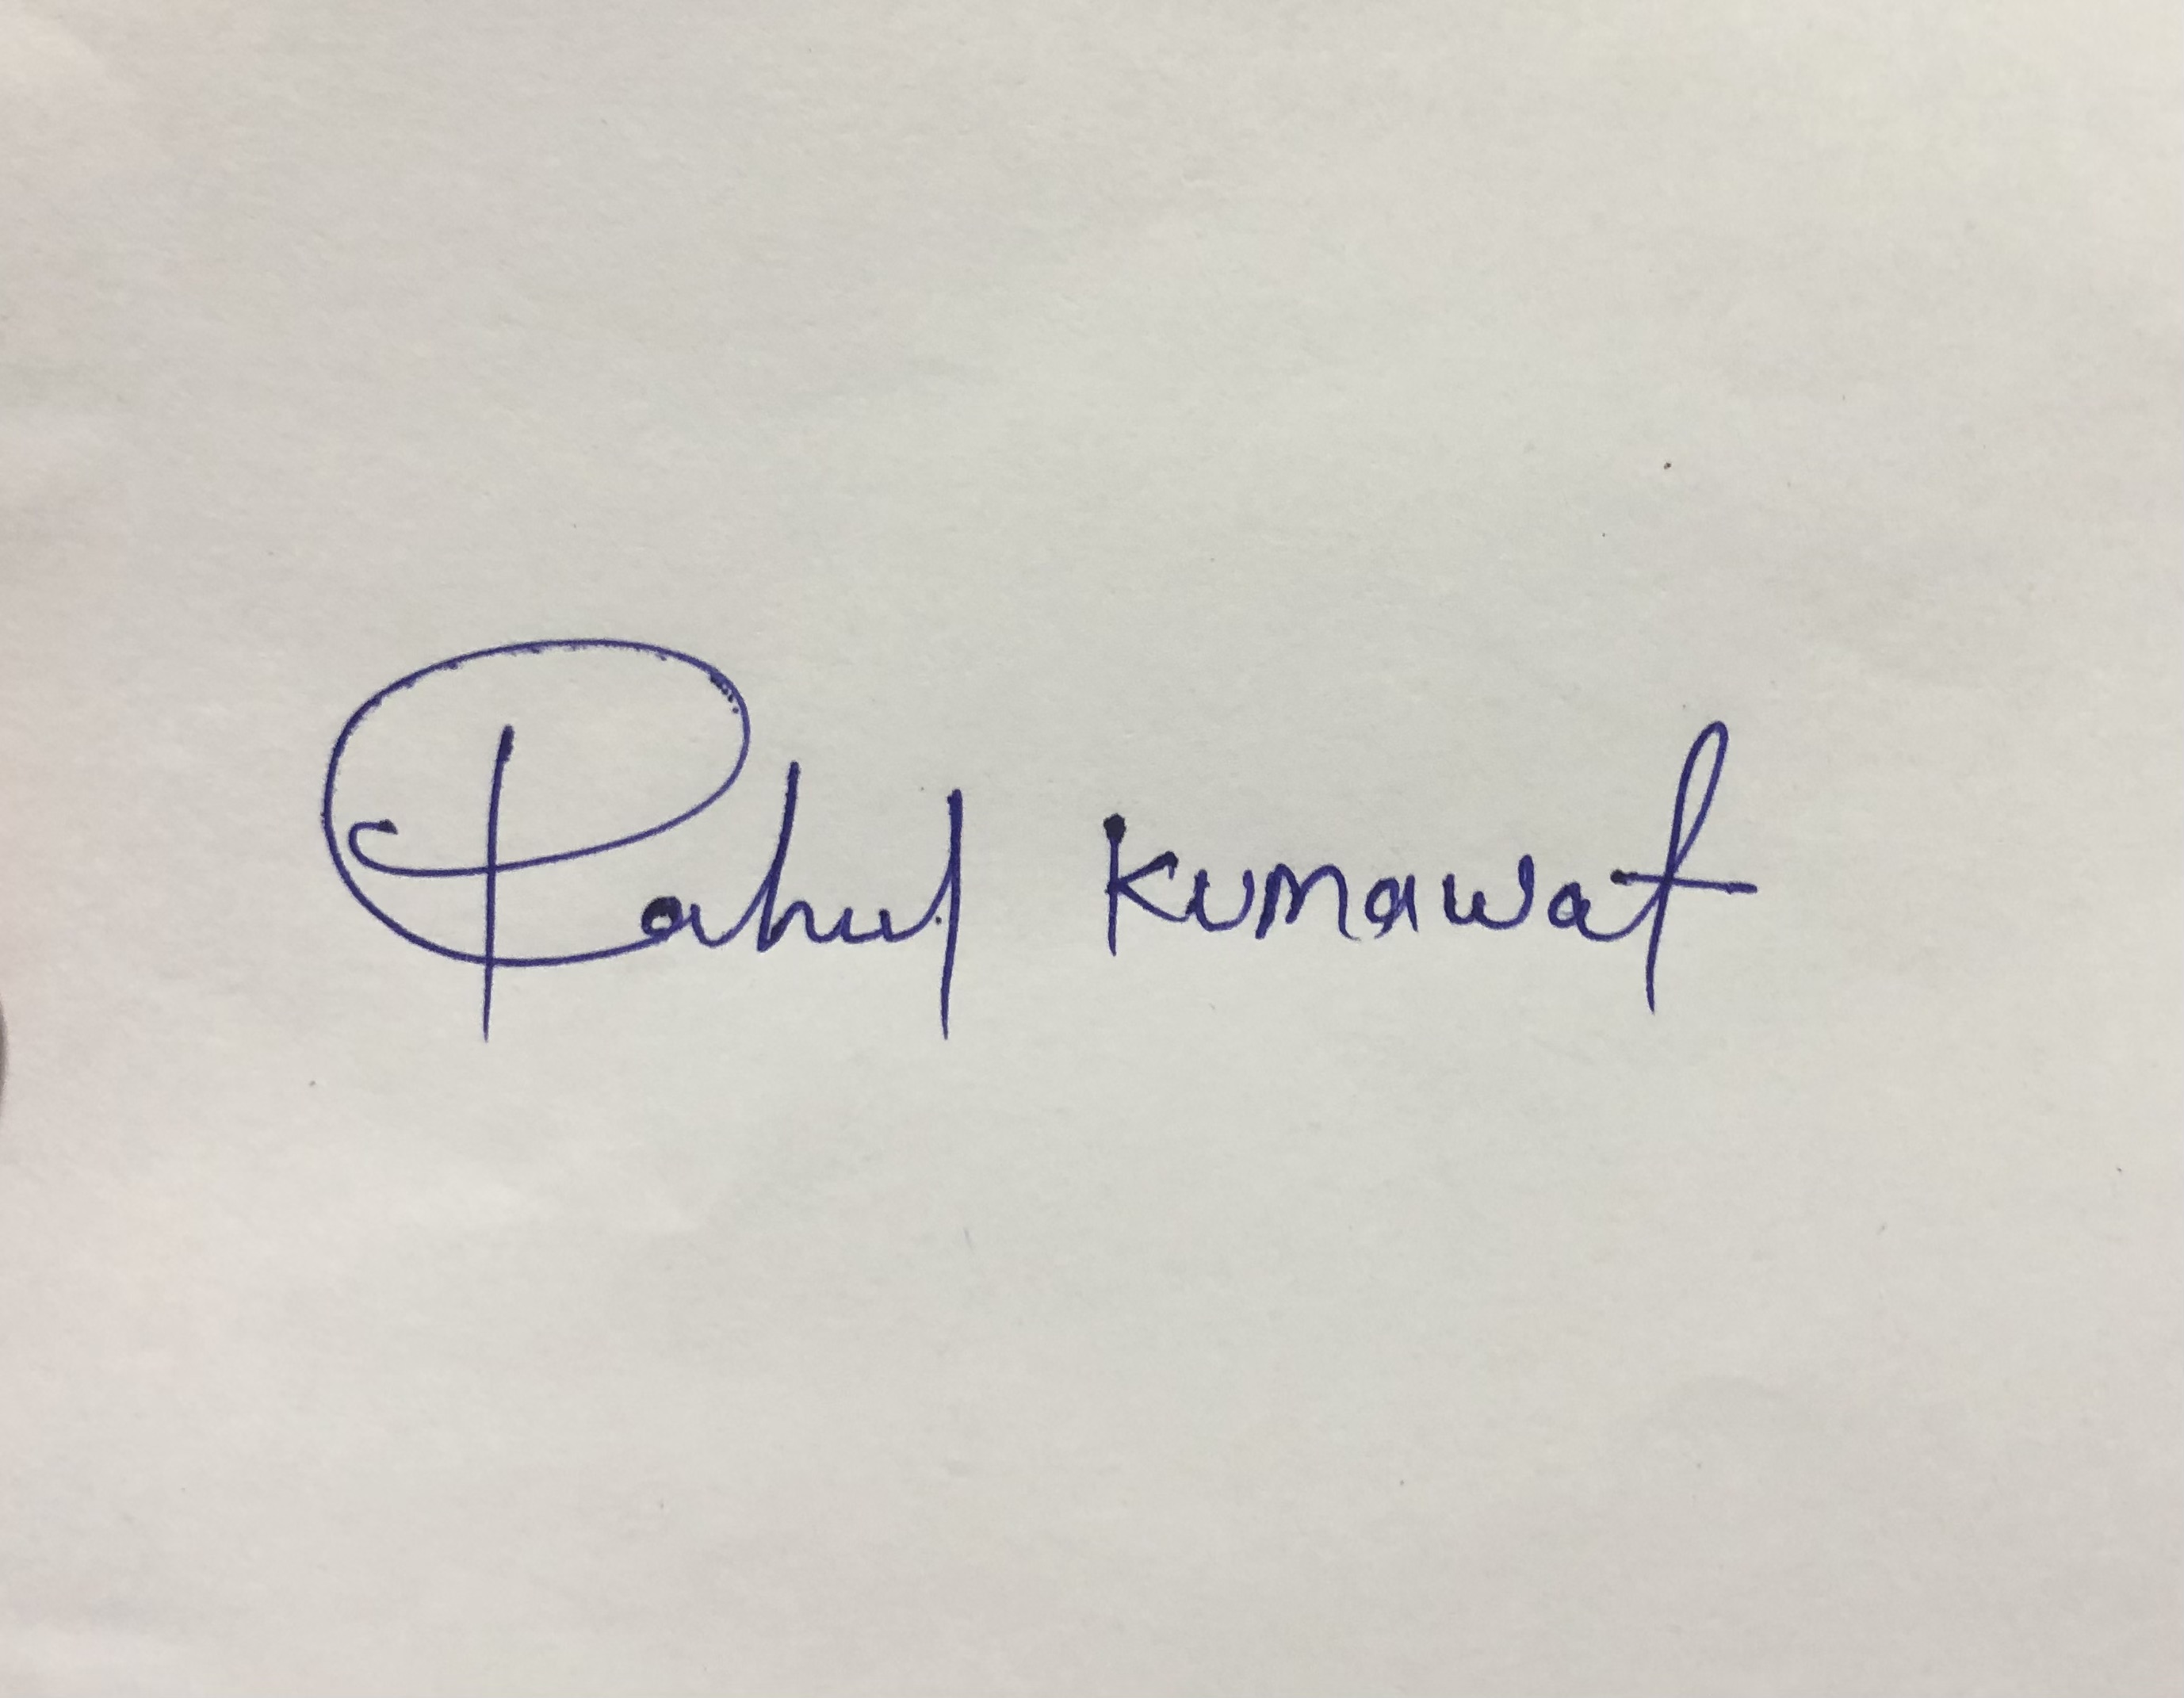 Rahul Kumawat